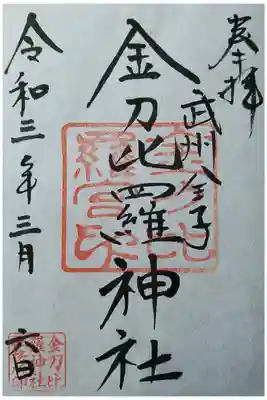 奉拝
武州金子
金刀比羅神社
令和三年三月六日
金刀比
羅神社